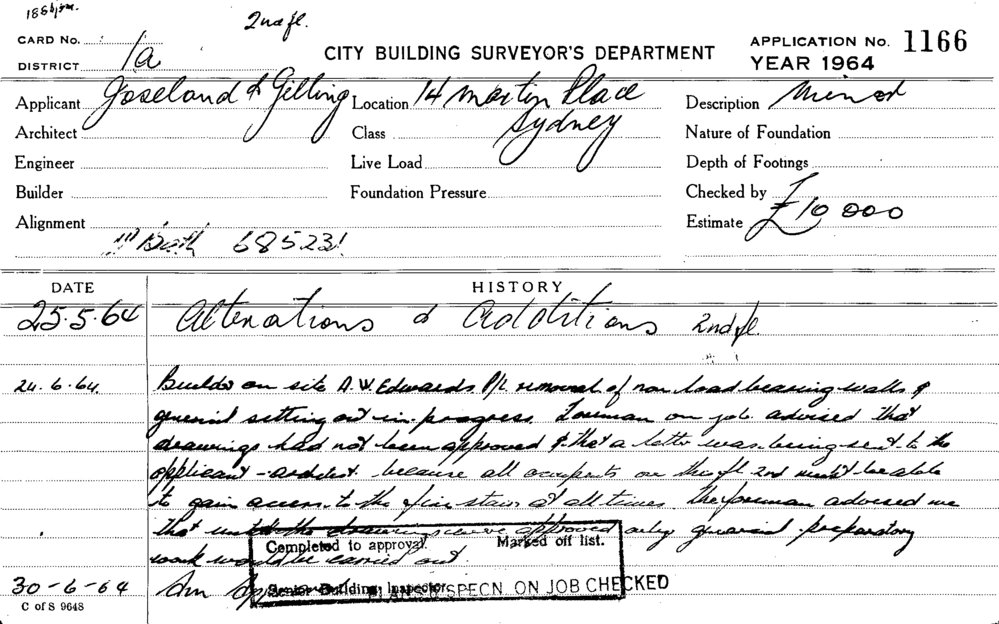 2nd fl.
CARD No. 1a
DISTRICT
CITY BUILDING SURVEYOR'S DEPARTMENT
APPLICATION No. 1166
YEAR 1964
Applicant Joseland & Gilling
Location 14 Martin Place
Sydney
Description Minor
Architect
Class
Nature of Foundation
Engineer
Live Load
Depth of Footings
Builder
Foundation Pressure
Checked by
Alignment
Estimate £10 000
68523
DATE
HISTORY
25.5.64 Alterations & Additions 2nd fl.
24.6.64. Builder on site A.W. Edwards P/L removal of non load bearing walls &
general setting out in progress. Foreman on job advised that
drawings had not been approved & that a letter was being sent to the
applicant - architect because all occupants on the fl 2nd must be able
to gain access to the fire stairs at all times. The foreman advised me
that until the were approved only general preparatory
work would be carried out.
Completed to approval. Marked off list.
Senior Building Inspector
30-6-64
SPECN. ON JOB CHECKED
C of S 9648